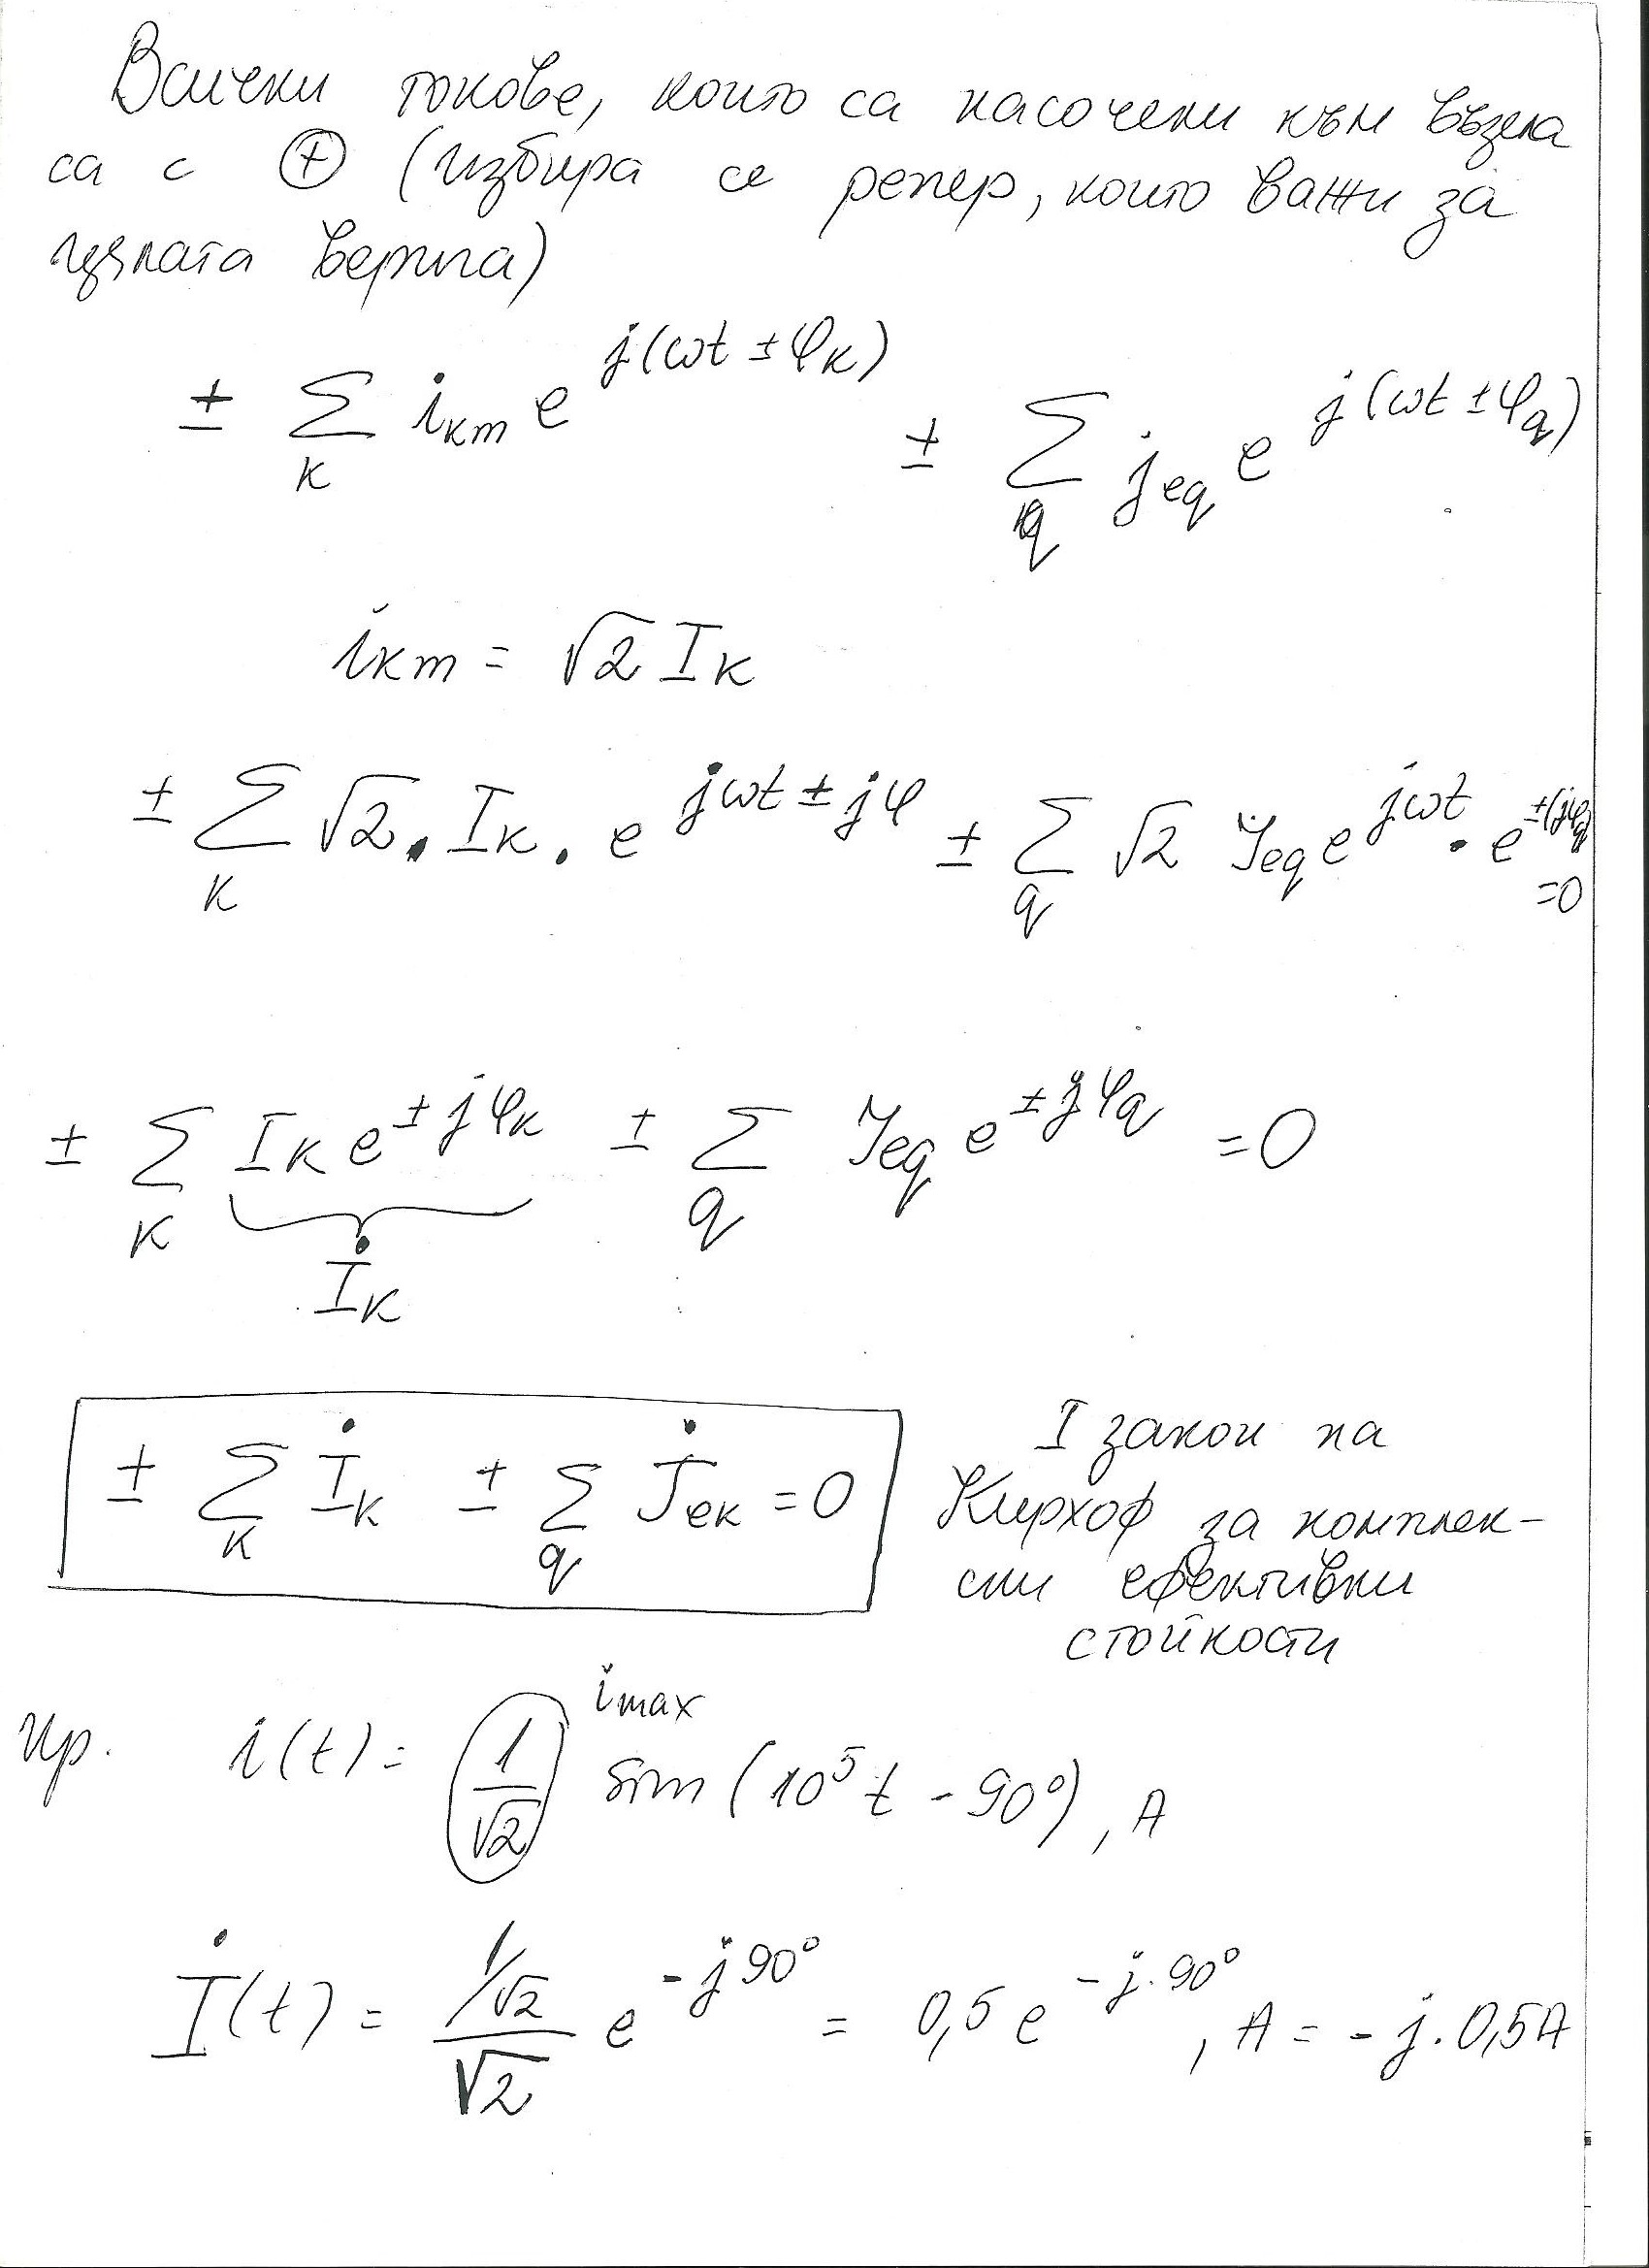 Всички токове, които са насочени към възела
са с ⊕ (избира се репер, който важи за
цялата верига)
± ∑_k i_km e^{j(ωt ± φ_k)} ± ∑_q j_eq e^{j(ωt ± φ_q)}
i_km = √2 I_k
± ∑_k √2 . I_k . e^{jωt ± jφ} ± ∑_q √2 J_eq e^{jωt} . e^{±(jφ_q)} =0
± ∑_k I_k e^{± jφ_k} ± ∑_q J_eq e^{± jφ_q} =0
İ_k
± ∑_k İ_k ± ∑_q J̇_ek =0
I закон на
Кирхоф за комплек-
сни ефективни
стойности
i_max
Пр. i(t) = 1/√2 sin (10^5 t - 90°), A
İ(t) = (1/√2)/√2 e^{-j90°} = 0,5 e^{-j.90°}, A = - j.0,5A